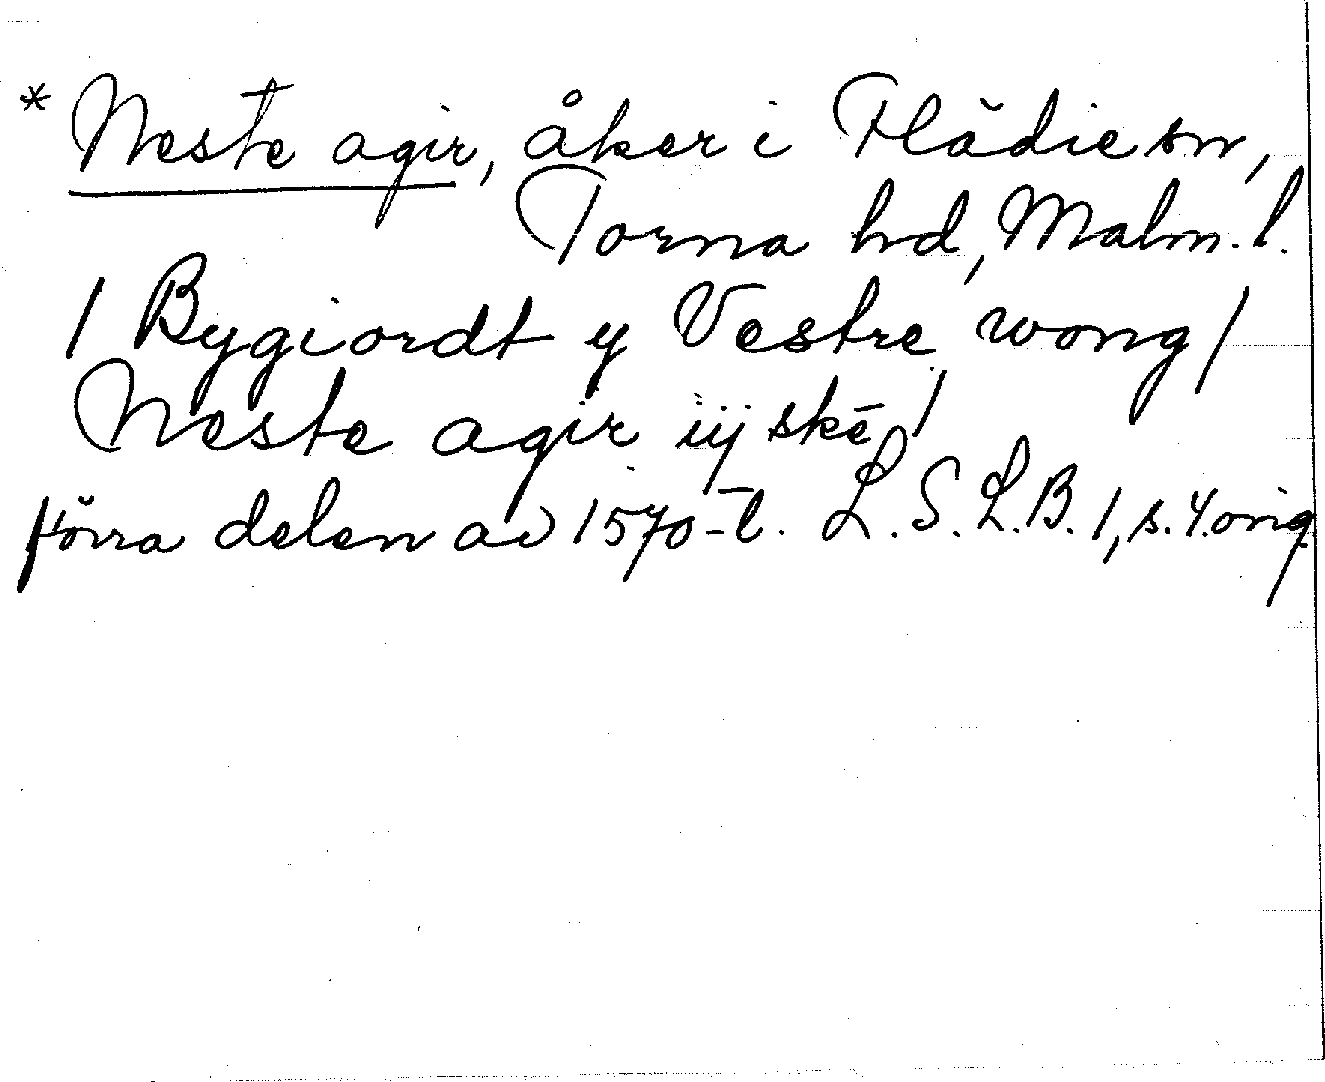 * Neste agir, åker i Flädie sn,
Torna hd, Malm. l.
/ Bygiordt y Vestre wong /
Neste agir iij skē /
förra delen av 1570-t. L.S.L.B. 1, s. 4. orig